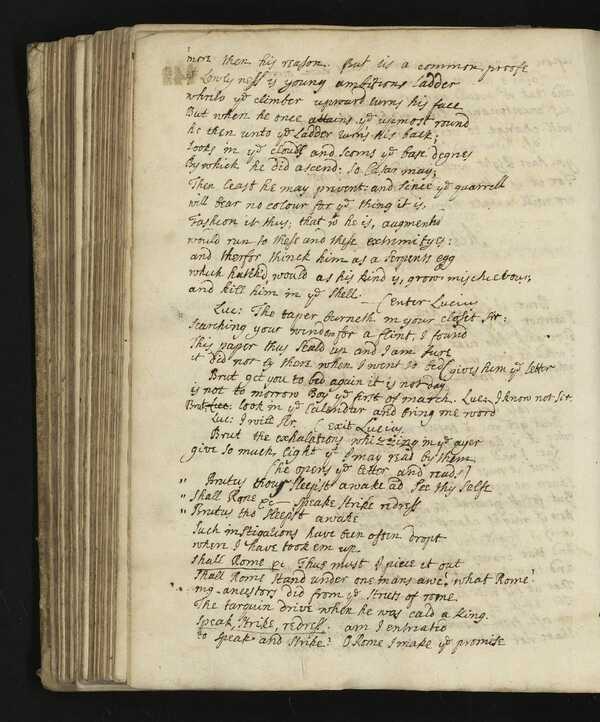 more then his reason. But tis a common proofe
Lowlyness is young ambitions ladder
whereto yᵉ climber upward turns his face
But when he once attains yᵉ upmost round
he then unto yᵉ Ladder turns his back,
looks in yᵉ clouds and scorns yᵉ base degrees
By which he did ascend: So Cæsar may;
Then least he may prevent: and since yᵉ quarrell
will bear no colour for yᵉ thing it is,
Fashion it thus; that wᵗ he is, augmented
would run to these and these extremityes:
and therfor thinck him as a serpents egg
which hatch'd, would as his kind is, grow mischevous;
and kill him in yᵉ shell. (enter Lucius
Luc: The taper burneth in your closet Sir:
searching your window for a flint, I found
This paper thus seald up and I am sure
it did not ly there when I went to bed (gives him yᵉ letter
Brut get you to bed again it is not day
is not to morrow Boy yᵉ first of march. Luc. I know not Sr.
Brut look in yᵉ Calendar and bring me word
Luc: I will Sr. (exit Lucius
Brut the exhalations whizzing in yᵉ ayer
give so much light yᵗ I may read by them
(he opens yᵉ letter and reads)
" Brutus thou sleepst awake and see thy selfe
" Shall Rome &c— speake strike redress
" Brutus tho sleepst awake
Such instigations have been often dropt
where I have took em up.
Shall Rome &c Thus must I piece it out
Shall Rome stand under one mans awe, what Rome!
my ancestors did from yᵉ streets of rome
The tarquin drive when he was cald a king.
speak, strike, redress. am I entreated
to speak and strike? O Rome I make yᵉ promise